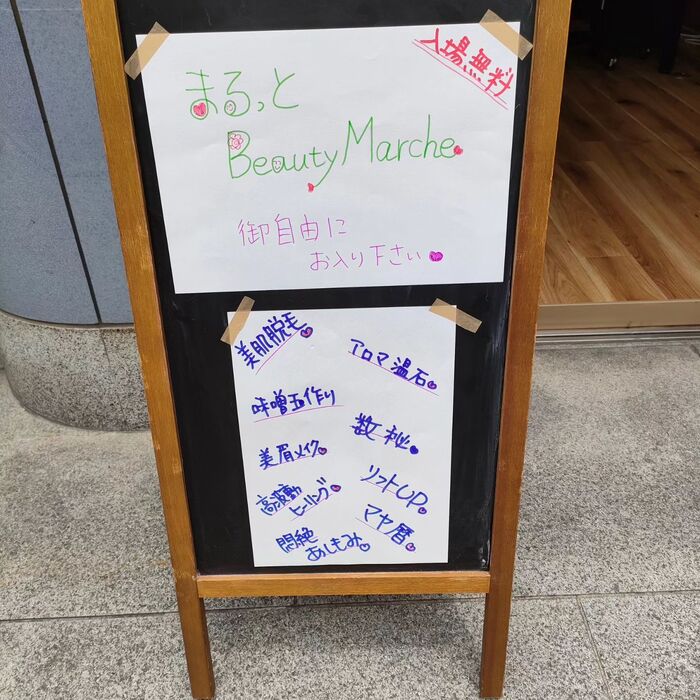 入場無料
まるっと
Beauty Marche
御自由に
お入り下さい
美肌脱毛
アロマ温石
味噌玉作り
数秘
美眉メイク
リフトUP
高波動
ヒーリング
マヤ暦
悶絶
あしもみ